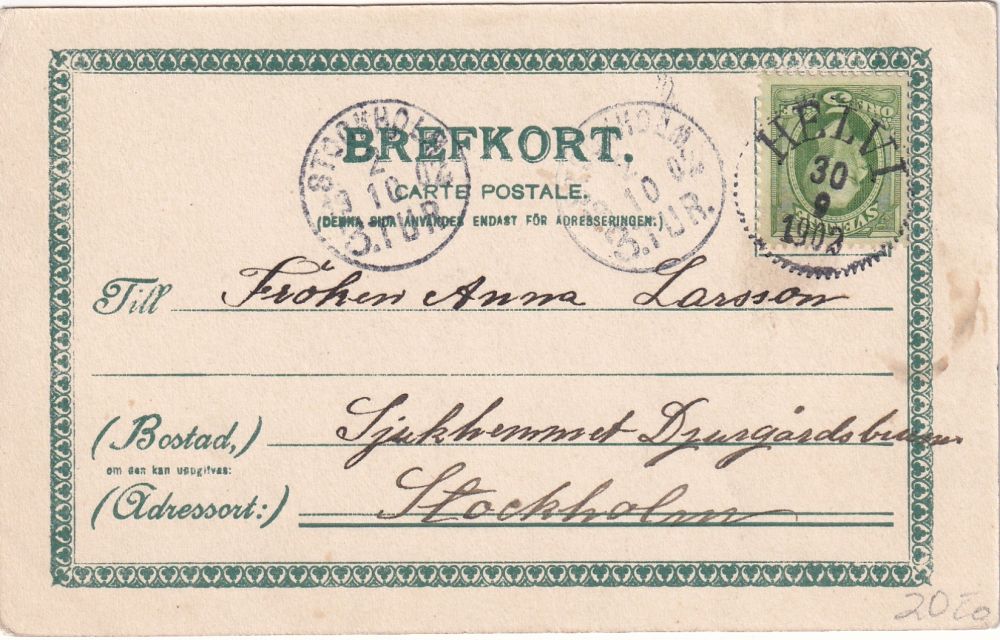 BREFKORT.
CARTE POSTALE.
(DENNA SIDA ANVÄNDES ENDAST FÖR ADRESSERINGEN.)
STOCKHOLM
2 10 02
3.TUR.
2 10 02
3.TUR.
HELVI
30
9
1902
Till Fröken Anna Larsson
(Bostad,) Sjukhemmet Djurgårdsbrunn
om den kan uppgifvas:
(Adressort:) Stockholm
20